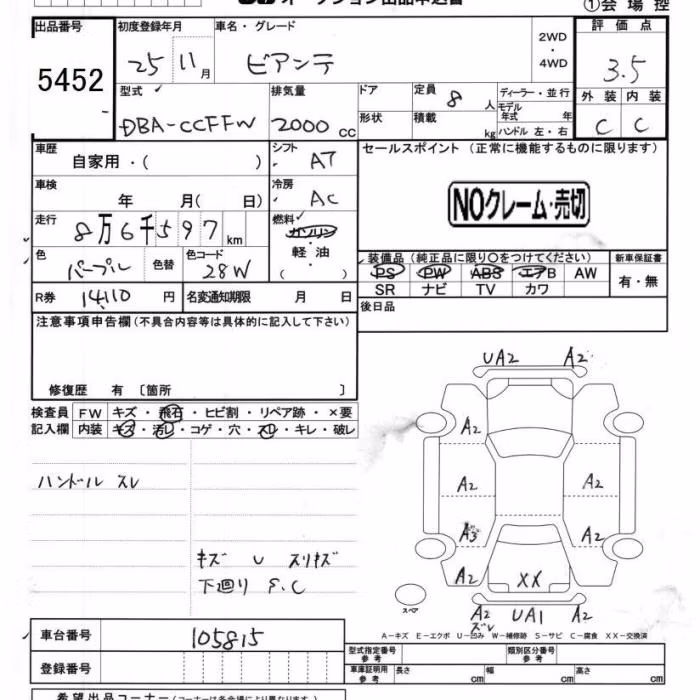 オークション出品申込書
①会場控
出品番号 5452
初度登録年月 25 11月
車名・グレード ビアンテ
2WD・4WD
評価点 3.5
外装 C 内装 C
型式 DBA-CCFFW
排気量 2000 cc
ドア
形状
定員 8 人
積載 kg
ディーラー・並行
モデル年式 年
ハンドル 左・右
車歴 自家用・( )
シフト AT
セールスポイント (正常に機能するものに限ります)
車検 年 月( 日)
冷房 AC
NOクレーム・売切
走行 8万6千597 km
燃料 ガソリン
軽油
( )
色 パープル 色替
色コード 28W
装備品 (純正品に限り○をつけてください)
PS PW ABS エアB AW
SR ナビ TV カワ
新車保証書 有・無
R券 14110 円
名変通知期限 月 日
後日品
注意事項申告欄 (不具合内容等は具体的に記入して下さい)
修復歴 有 〔箇所 〕
検査員記入欄
FW キズ・飛石・ヒビ割・リペア跡・×要
内装 キズ・汚レ・コゲ・穴・スレ・キレ・破レ
ハンドル スレ
キズ U スリキズ
下廻り S.C
UA2 A2
A2
A2 A2
A3 A2
A2 XX
スペア
A2 UA1 A2
ズレ
A-キズ E-エクボ U-凹み W-補修跡 S-サビ C-腐食 XX-交換済
車台番号 105815
登録番号
型式指定番号 参考
類別区分番号 参考
車庫証明用 参考 長さ cm 幅 cm 高さ cm
希望出品コーナー (コーナー名は各会場により異なります。)